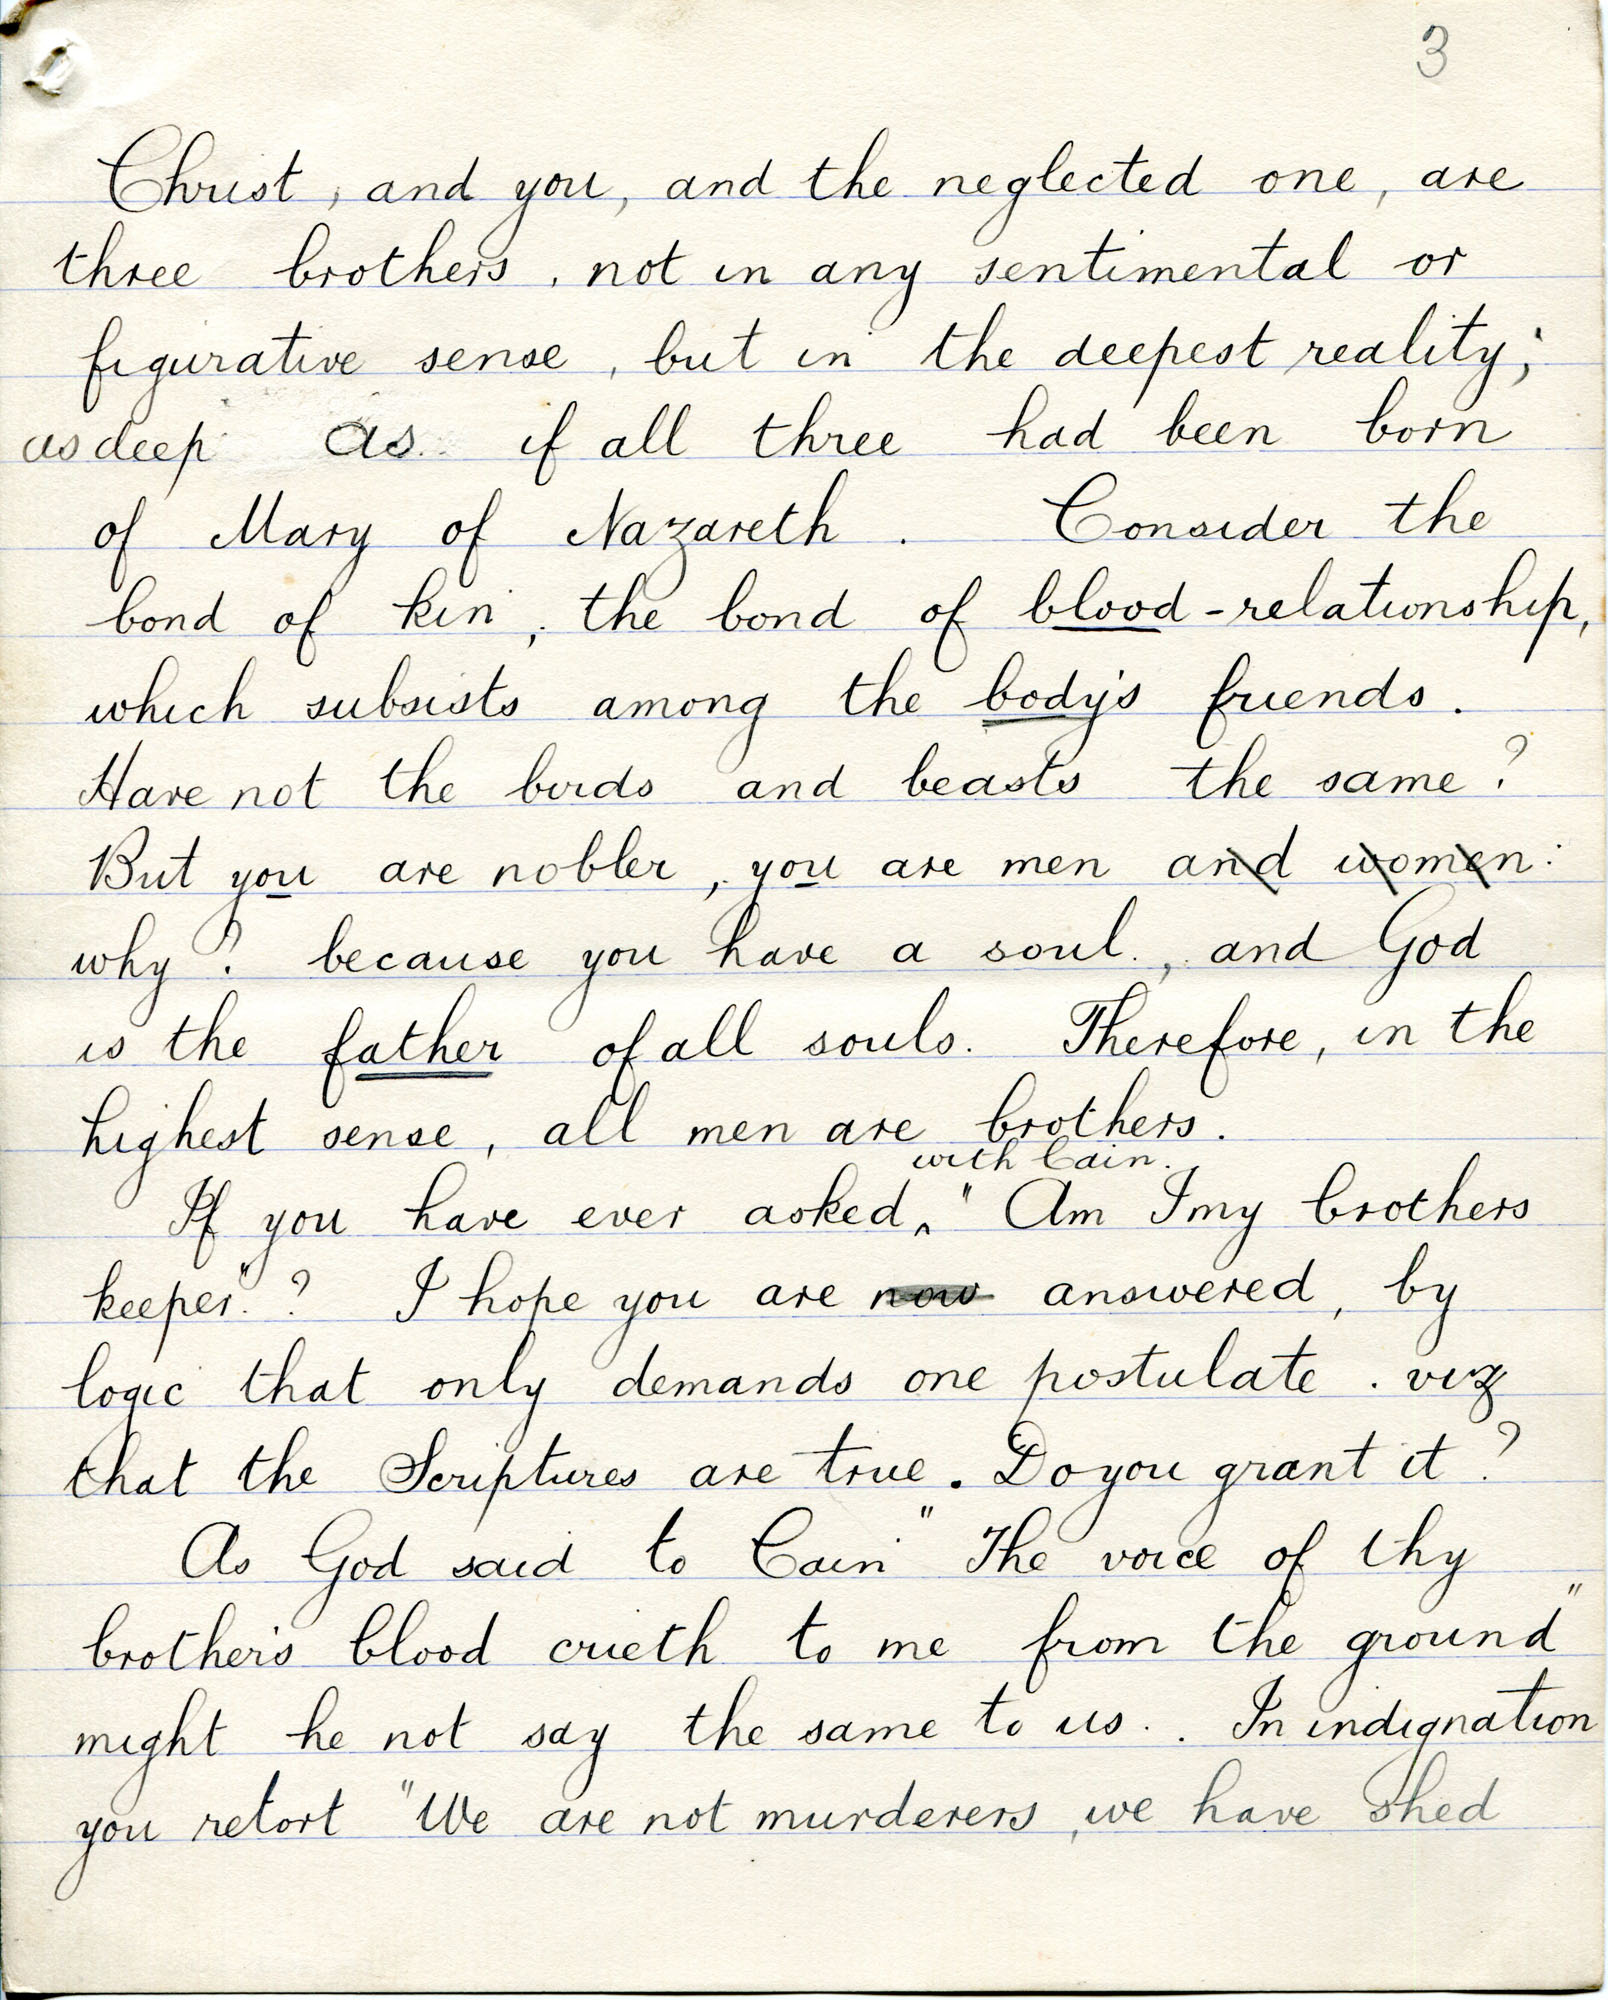 3
Christ, and you, and the neglected one, are
three brothers, not in any sentimental or
figurative sense, but in the deepest reality;
as deep as if all three had been born
of Mary of Nazareth. Consider the
bond of kin, the bond of blood-relationship,
which subsists among the body's friends.
Have not the birds and beasts the same?
But you are nobler, you are men and women:
why? because you have a soul, and God
is the father of all souls. Therefore, in the
highest sense, all men are brothers.
with Cain.
If you have ever asked, "Am I my brothers
keeper"? I hope you are now answered, by
logic that only demands one postulate. viz
that the Scriptures are true. Do you grant it?
As God said to Cain "The voice of thy
brother's blood crieth to me from the ground"
might he not say the same to us. In indignation
you retort "We are not murderers, we have shed